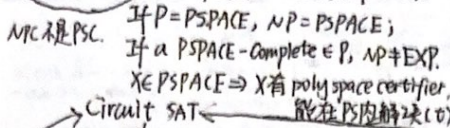 NPC不是PSC.
If P=PSPACE, NP=PSPACE;
If a PSPACE-Complete ∈ P, NP≠EXP.
X∈PSPACE ⇒ X有 poly space certifier,
能在PS内解决(t)
Circuit SAT